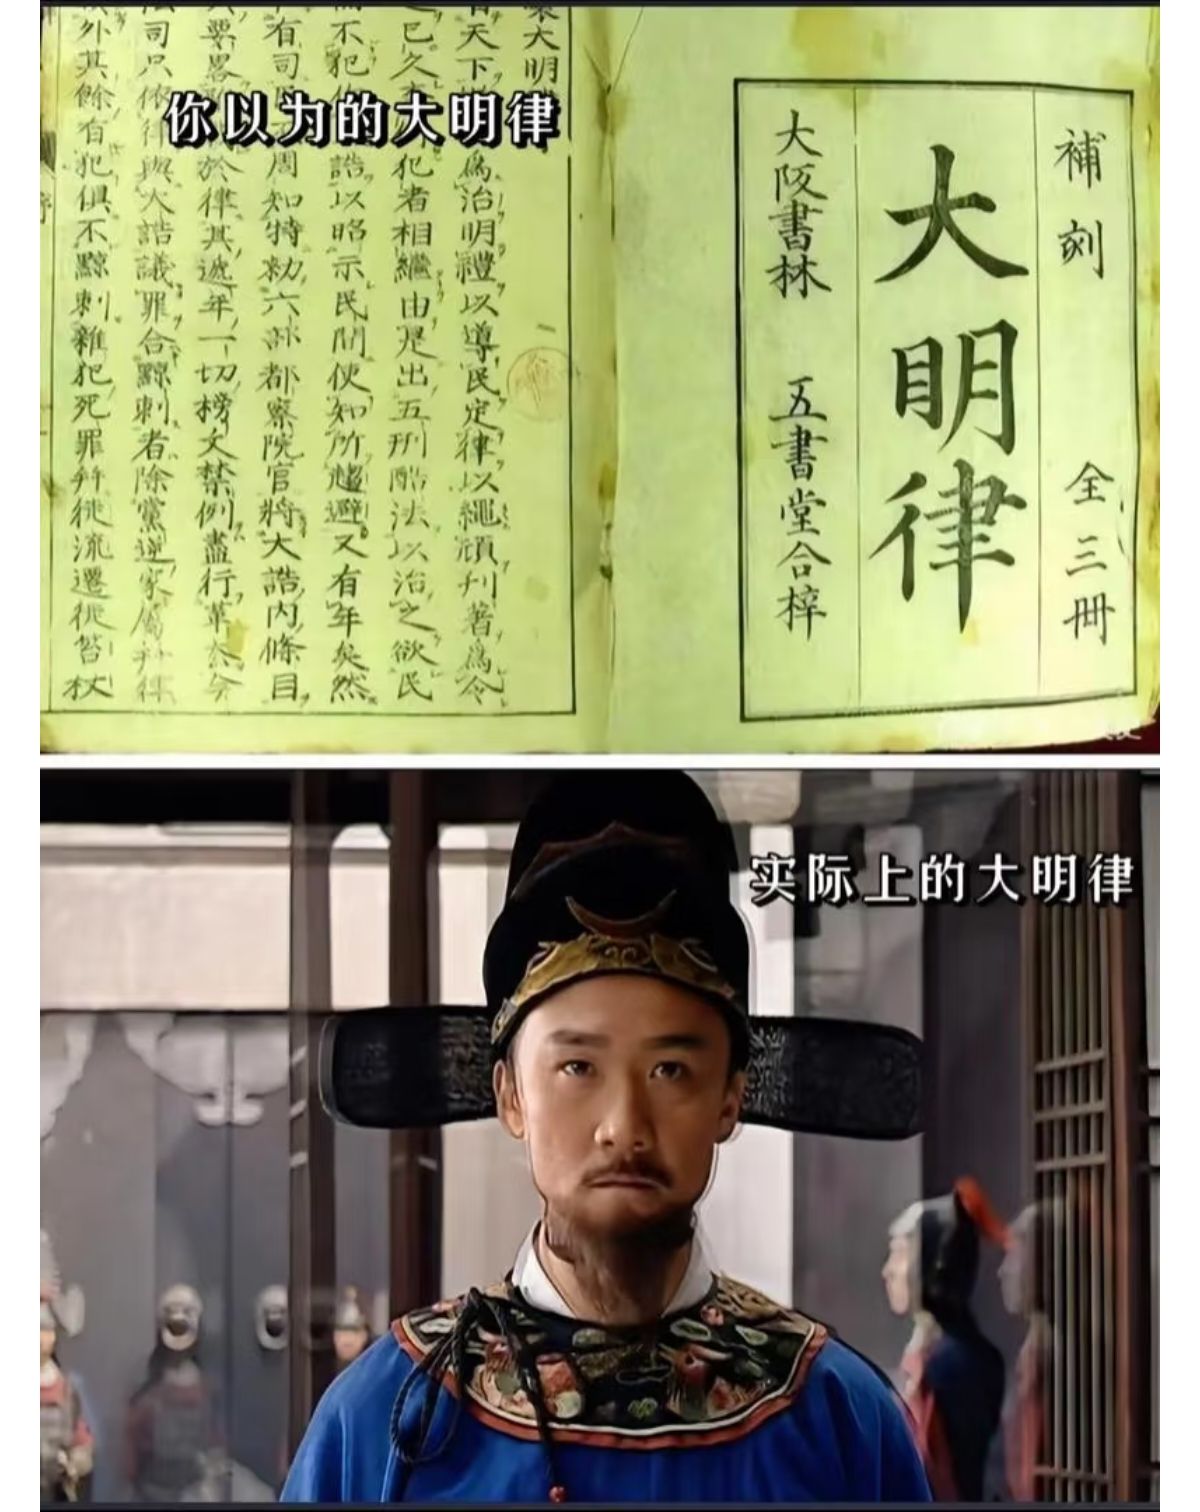 你以为的大明律
補刻 全三冊
大明律
大阪書林 五書堂合梓
大明
天下 為治明禮以導民定律以繩頑刊著為令
已久 犯者相繼由是出五刑酷法以治之欲民
不犯 誥以昭示民間使知所趨避又有年矣然
有司 周知特勑六部都察院官將大誥内條目
要畧 於律其遞年一切榜文禁例盡行革去今
司只依律與大誥議罪合黥刺者除黨逆家屬并律
外其餘有犯俱不黥刺雜犯死罪并徒流遷徙笞杖
实际上的大明律